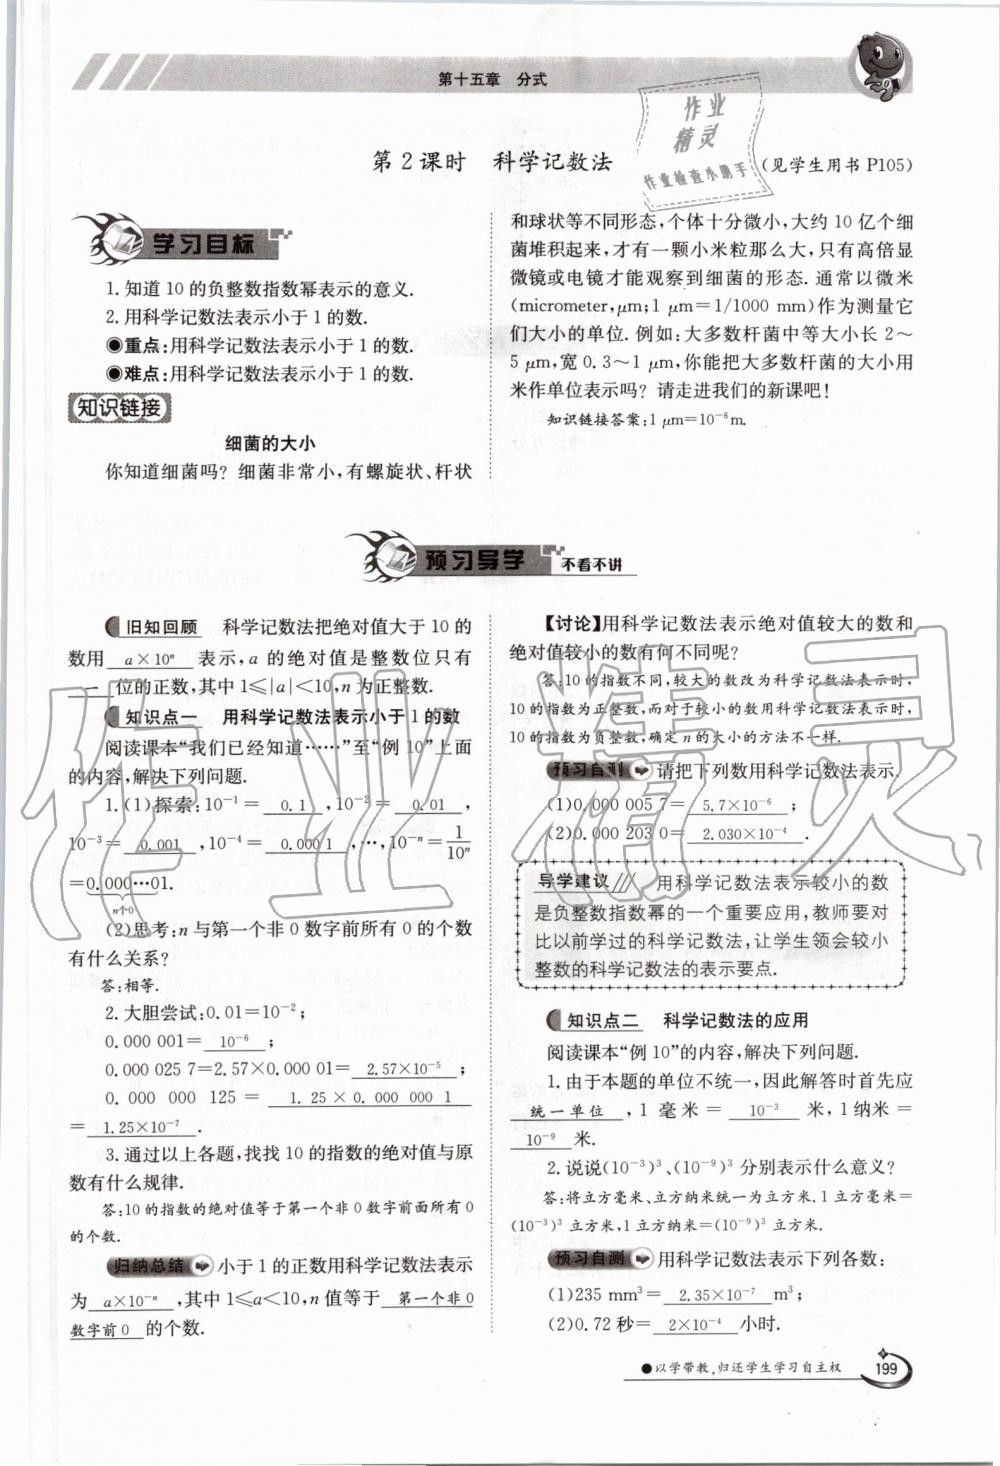 第十五章 分式
作业
精灵
作业检查小助手
第2课时 科学记数法
(见学生用书 P105)
学习目标
1. 知道 10 的负整数指数幂表示的意义.
2. 用科学记数法表示小于 1 的数.
◉重点:用科学记数法表示小于 1 的数.
◉难点:用科学记数法表示小于 1 的数.
知识链接
细菌的大小
你知道细菌吗? 细菌非常小,有螺旋状、杆状
和球状等不同形态,个体十分微小,大约 10 亿个细
菌堆积起来,才有一颗小米粒那么大,只有高倍显
微镜或电镜才能观察到细菌的形态. 通常以微米
(micrometer,μm;1 μm=1/1000 mm)作为测量它
们大小的单位. 例如:大多数杆菌中等大小长 2~
5 μm,宽 0.3~1 μm,你能把大多数杆菌的大小用
米作单位表示吗? 请走进我们的新课吧!
知识链接答案:1 μm=10⁻⁶m.
预习导学 不看不讲
旧知回顾 科学记数法把绝对值大于 10 的
数用 a×10ⁿ 表示,a 的绝对值是整数位只有
一 位的正数,其中 1≤|a|<10,n 为正整数.
知识点一 用科学记数法表示小于 1 的数
阅读课本“我们已经知道……”至“例 10”上面
的内容,解决下列问题.
1. (1)探索:10⁻¹= 0.1 ,10⁻²= 0.01 ,
10⁻³= 0.001 ,10⁻⁴= 0.000 1 ,…,10⁻ⁿ=1/10ⁿ
=0.000…01.
n个0
(2)思考:n 与第一个非 0 数字前所有 0 的个数
有什么关系?
答:相等.
2. 大胆尝试:0.01=10⁻²;
0.000 001= 10⁻⁶ ;
0.000 025 7=2.57×0.000 01= 2.57×10⁻⁵ ;
0. 000 000 125 = 1. 25 × 0. 000 000 1
= 1.25×10⁻⁷ .
3. 通过以上各题,找找 10 的指数的绝对值与原
数有什么规律.
答:10 的指数的绝对值等于第一个非 0 数字前面所有 0
的个数.
归纳总结 小于 1 的正数用科学记数法表示
为 a×10⁻ⁿ ,其中 1≤a<10,n 值等于 第一个非 0
数字前 0 的个数.
【讨论】用科学记数法表示绝对值较大的数和
绝对值较小的数有何不同呢?
答:10 的指数不同,较大的数改为科学记数法表示时,
10 的指数为正整数,而对于较小的数用科学记数法表示时,
10 的指数为负整数,确定 n 的大小的方法不一样.
预习自测 请把下列数用科学记数法表示.
(1)0.000 005 7= 5.7×10⁻⁶ ;
(2)0.000 203 0= 2.030×10⁻⁴ .
导学建议 用科学记数法表示较小的数
是负整数指数幂的一个重要应用,教师要对
比以前学过的科学记数法,让学生领会较小
整数的科学记数法的表示要点.
知识点二 科学记数法的应用
阅读课本“例 10”的内容,解决下列问题.
1. 由于本题的单位不统一,因此解答时首先应
统一单位 ,1 毫米= 10⁻³ 米,1 纳米=
10⁻⁹ 米.
2. 说说(10⁻³)³、(10⁻⁹)³ 分别表示什么意义?
答:将立方毫米、立方纳米统一为立方米.1 立方毫米=
(10⁻³)³ 立方米,1 立方纳米=(10⁻⁹)³ 立方米.
预习自测 用科学记数法表示下列各数:
(1)235 mm³= 2.35×10⁻⁷ m³;
(2)0.72 秒= 2×10⁻⁴ 小时.
●以学带教,归还学生学习自主权
199
作业精灵